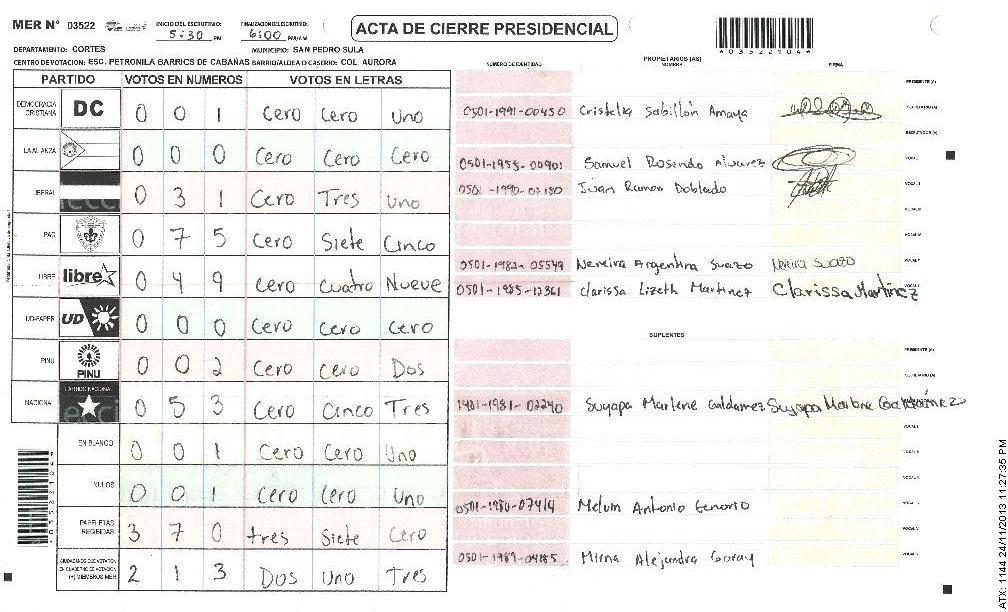 MER N° 03522 INICIO DEL ESCRUTINIO: 5:30 PM FINALIZACION ESCRUTINIO: 6:00 PM/A.M. ACTA DE CIERRE PRESIDENCIAL
*03522104*
DEPARTAMENTO: CORTES MUNICIPIO: SAN PEDRO SULA
CENTRO DE VOTACION: ESC. PETRONILA BARRIOS DE CABAÑAS BARRIO/ALDEA O CASERIO: COL. AURORA
PARTIDO VOTOS EN NUMEROS VOTOS EN LETRAS
DEMOCRACIA CRISTIANA DC 0 0 1 Cero Cero Uno
LA ALIANZA 0 0 0 Cero Cero Cero
LIBERAL 0 3 1 Cero Tres Uno
PAC 0 7 5 Cero Siete Cinco
LIBRE libre 0 4 9 Cero Cuatro Nueve
UD-FAPER UD 0 0 0 Cero Cero Cero
PINU PINU 0 0 2 Cero Cero Dos
NACIONAL PARTIDO NACIONAL 0 5 3 Cero Cinco Tres
EN BLANCO 0 0 1 Cero Cero Uno
NULOS 0 0 1 Cero Cero Uno
PAPELETAS RECIBIDAS 3 7 0 tres Siete Cero
CIUDADANOS QUE VOTARON EN CUADERNO DE VOTACION (+) MIEMBROS MER 2 1 3 Dos Uno Tres
PROPIETARIOS (AS)
NUMERO DE IDENTIDAD NOMBRE FIRMA
PRESIDENTE (A)
0501-1991-00450 Cristelia Sabillón Amaya SECRETARIO (A)
0501-1955-00901 Samuel Rosendo Alvarez VOCAL I
0501-1990-07180 Juan Ramon Doblado
0501-1982-05549 Nereira Argentina Suazo Nereira Suazo
0501-1985-12361 Clarissa Lizeth Martinez Clarissa Martinez
SUPLENTES
PRESIDENTE (A)
SECRETARIO (A)
1401-1981-02240 Suyapa Marlene Galdamez
0501-1980-07414 Melvin Antonio Tenorio
0501-1989-04185 Mirna Alejandra Garay
ATX: 1144 24/11/2013 11:27:35 PM